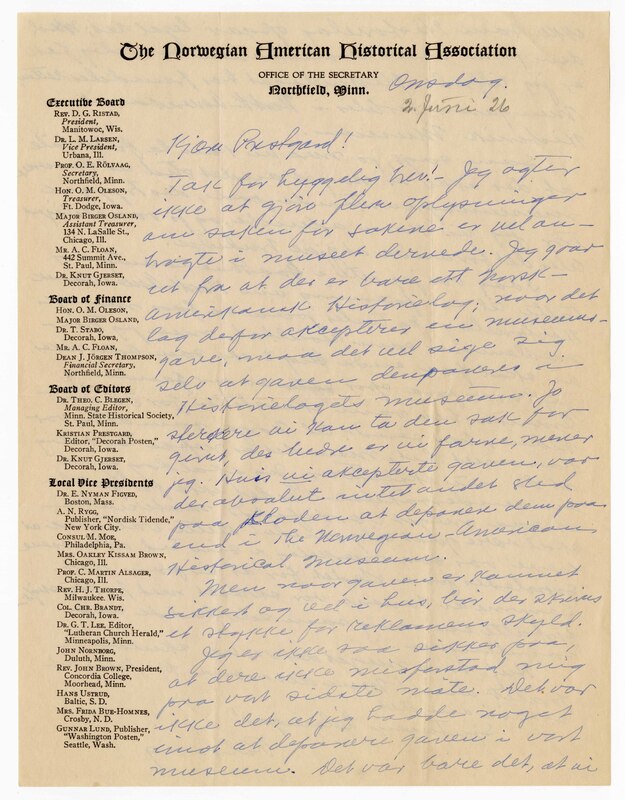 The Norwegian American Historical Association
OFFICE OF THE SECRETARY
Northfield, Minn.
Onsdag.
2. Juni 26
Executive Board
REV. D. G. RISTAD,
President,
Manitowoc, Wis.
DR. L. M. LARSEN,
Vice President,
Urbana, Ill.
PROF. O. E. RÖLVAAG,
Secretary,
Northfield, Minn.
HON. O. M. OLESON,
Treasurer,
Ft. Dodge, Iowa.
MAJOR BIRGER OSLAND,
Assistant Treasurer,
134 N. LaSalle St.,
Chicago, Ill.
MR. A. C. FLOAN,
442 Summit Ave.,
St. Paul, Minn.
DR. KNUT GJERSET,
Decorah, Iowa.
Board of Finance
HON. O. M. OLESON,
MAJOR BIRGER OSLAND,
DR. T. STABO,
Decorah, Iowa.
MR. A. C. FLOAN,
DEAN J. JÖRGEN THOMPSON,
Financial Secretary,
Northfield, Minn.
Board of Editors
DR. THEO. C. BLEGEN,
Managing Editor,
Minn. State Historical Society,
St. Paul, Minn.
KRISTIAN PRESTGARD,
Editor, "Decorah Posten,"
Decorah, Iowa.
DR. KNUT GJERSET,
Decorah, Iowa.
Local Vice Presidents
DR. E. NYMAN FIGVED,
Boston, Mass.
A. N. RYGG,
Publisher, "Nordisk Tidende,"
New York City.
CONSUL M. MOE,
Philadelphia, Pa.
MRS. OAKLEY KISSAM BROWN,
Chicago, Ill.
PROF. C. MARTIN ALSAGER,
Chicago, Ill.
REV. H. J. THORPE,
Milwaukee. Wis.
COL. CHR. BRANDT,
Decorah, Iowa.
DR. G. T. LEE, Editor,
"Lutheran Church Herald,"
Minneapolis, Minn.
JOHN NORNBORG,
Duluth, Minn.
REV. JOHN BROWN, President,
Concordia College,
Moorhead, Minn.
HANS USTRUD,
Baltic, S. D.
MRS. FRIDA BUE-HOMNES,
Crosby, N. D.
GUNNAR LUND, Publisher,
"Washington Posten,"
Seattle, Wash.
Kjære Prestgard!
Tak for hyggelig brev! – Jeg agter
ikke at gjøre flere oplysninger
om saken for sakene er vel an-
bragte i museet dernede. Jeg gaar
ut fra at der er bare ett Norsk-
amerikansk Historielag; naar det
lag derfor akcepterer en museums-
gave, maa det vel sige sig
selv at gaven deponeres i
Historielagets museum. Jo
sterkere vi kan ta den sak for
givet, des bedre er vi farne, mener
jeg. Hvis vi akcepterte gaven, var
der absolut intet andet sted
paa Kloden at deponere dem paa
end i The Norwegian-American
Historical Museum.
Men naar gaven er kommet
sikkert og vel i hus, bør der skrives
et stykke for reklamens skyld.
Jeg er ikke saa sikker paa,
at dere ikke misforstod mig
paa vort sidste møte. Det var
ikke det, at jeg hadde noget
imot at deponere gaven i vort
museum. Det var bare det, at vi